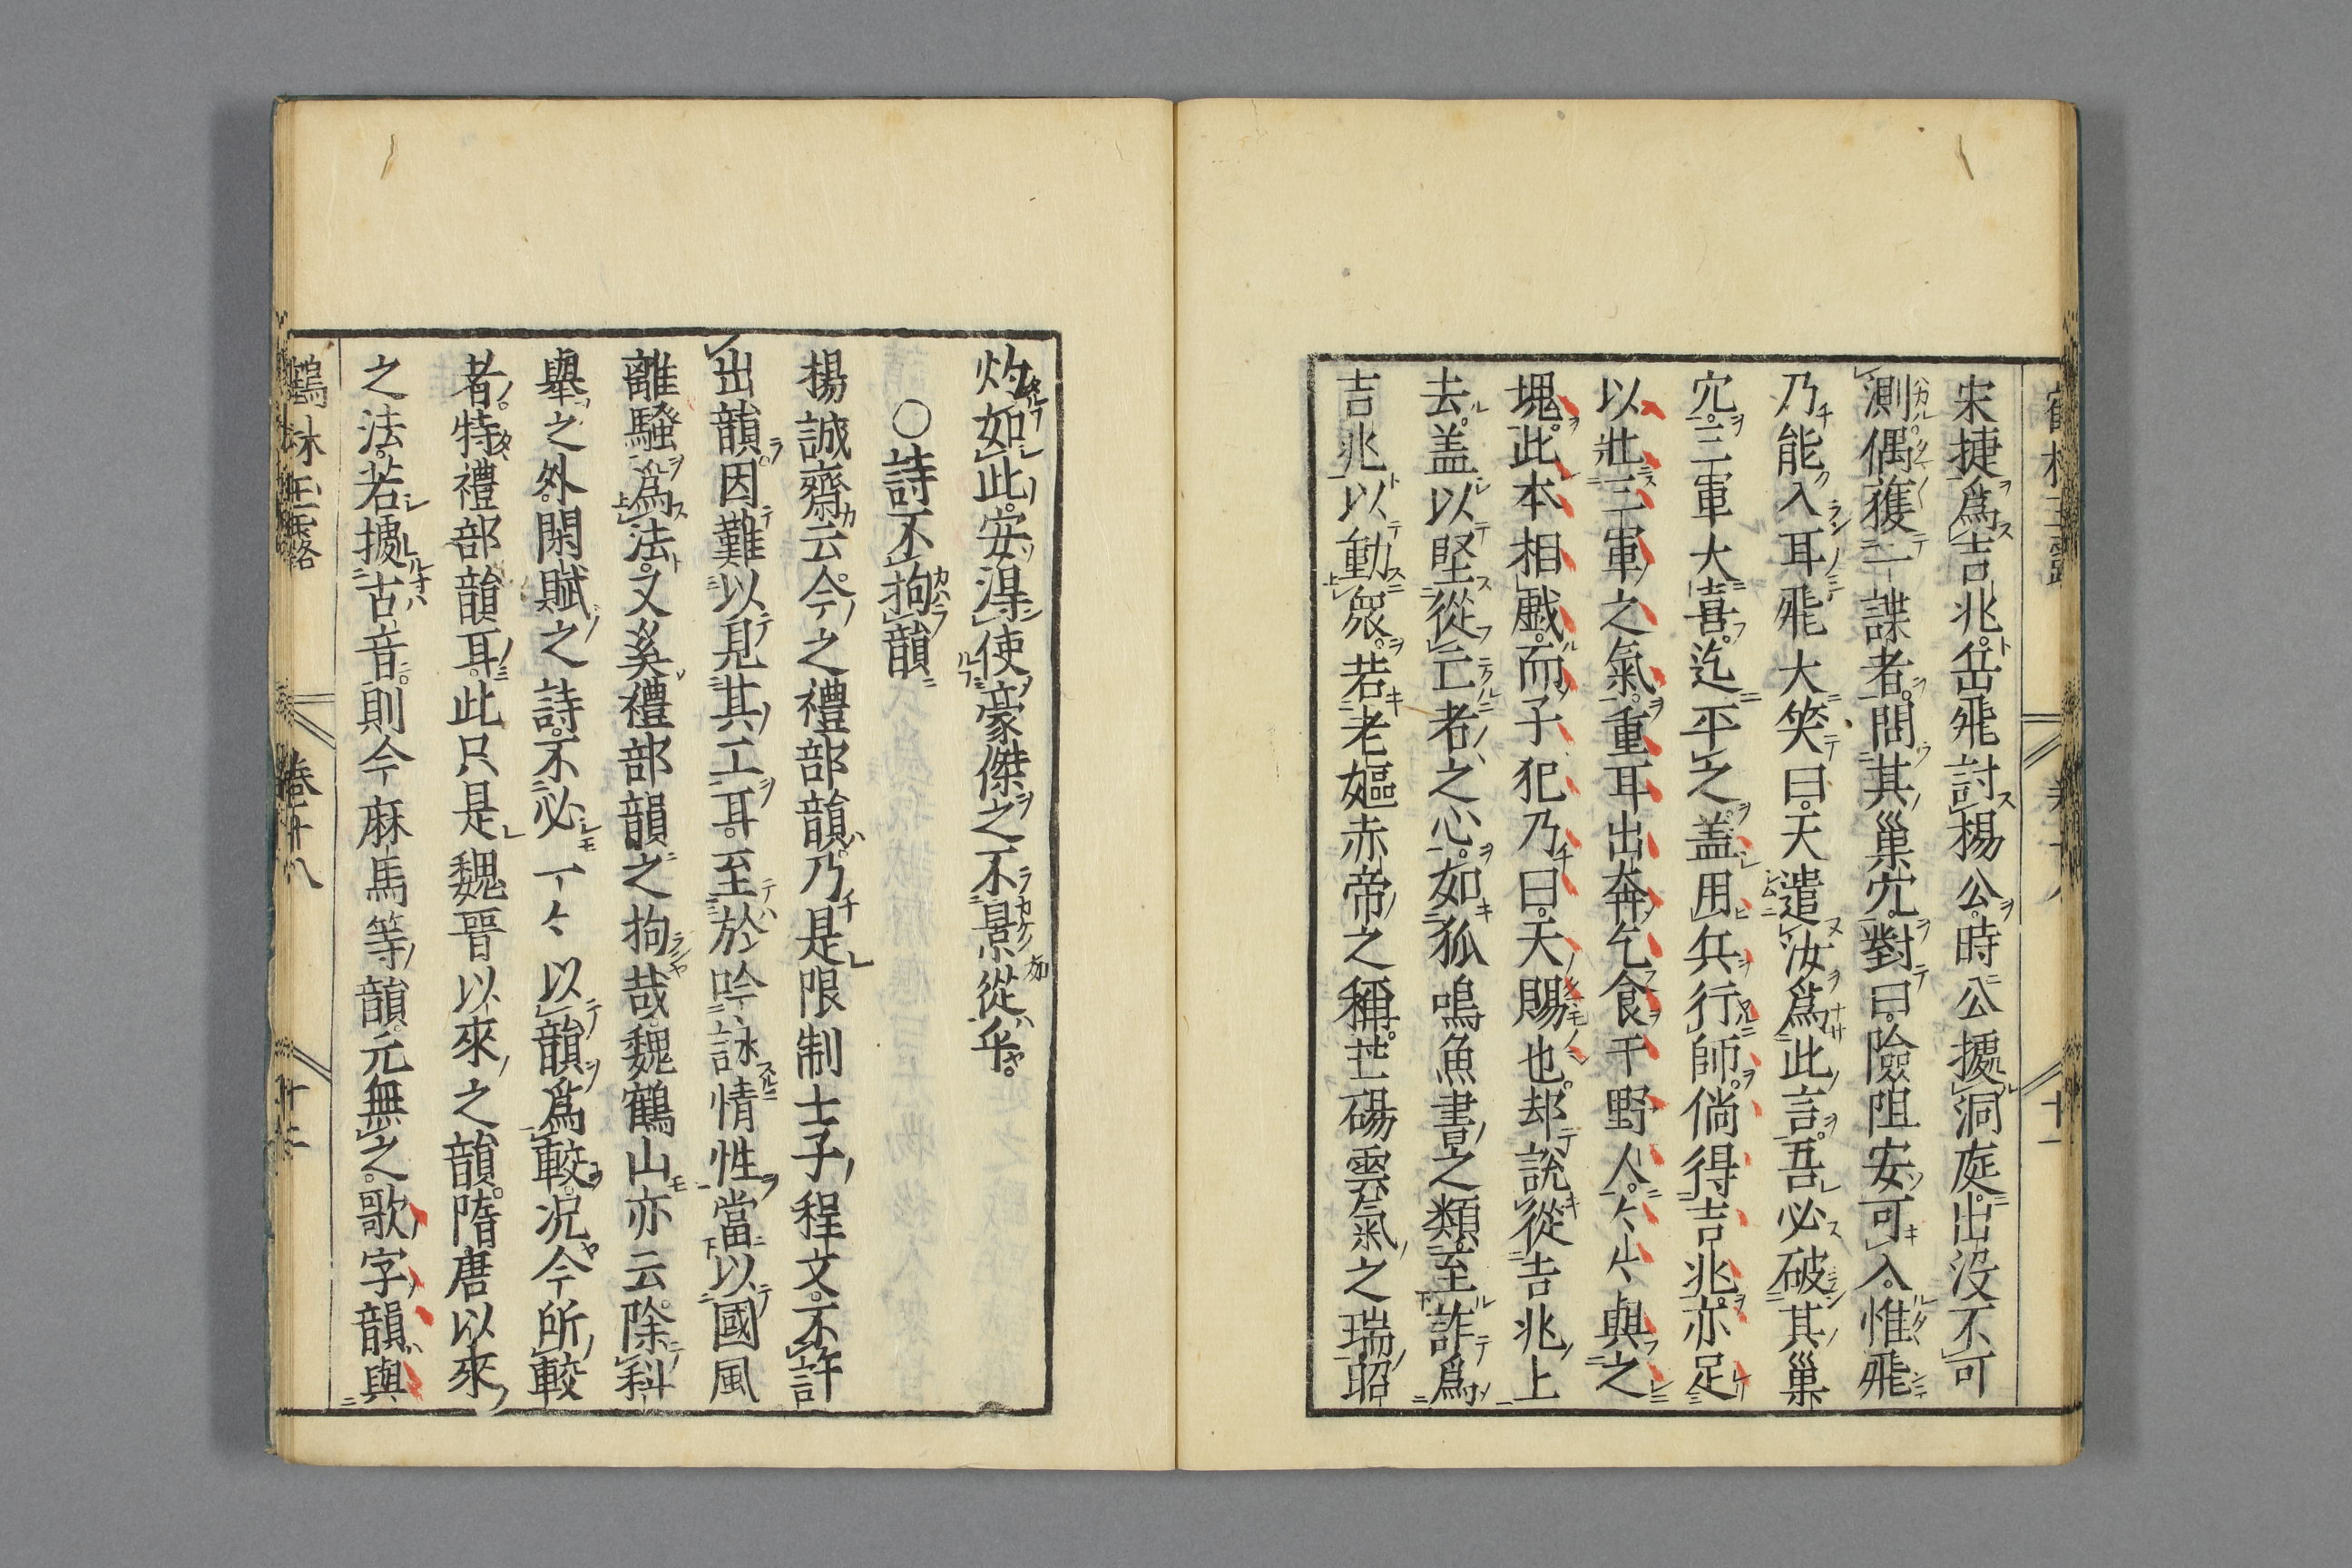 宋捷爲吉兆岳飛討楊公時公據洞庭出没不可
測偶獲一諜者問其巢穴對曰險阻安可入惟飛
乃能入耳飛大笑曰天遣汝爲此言吾必破其巢
穴三軍大喜迄平之盖用兵行師倘得吉兆亦足
以壯三軍之氣重耳出奔乞食于野人々々與之
塊此本相戲而子犯乃曰天賜也却説從吉兆上
去盖以堅從亡者之心如狐鳴魚書之類至詐爲
吉兆以動衆若老嫗赤帝之稱芒碭雲氣之瑞昭
灼如此安得使豪傑之不景從乎
○詩不拘韻
楊誠齋云今之禮部韻乃是限制士子程文不許
出韻因難以見其工耳至於吟詠情性當以國風
離騷爲法又奚禮部韻之拘哉魏鶴山亦云除科
舉之外閑賦之詩不必一々以韻爲較况今所較
者特禮部韻耳此只是魏晉以來之韻隋唐以來
之法若據古音則今麻馬等韻元無之歌字韻與
鶴林玉露 卷十八 十二